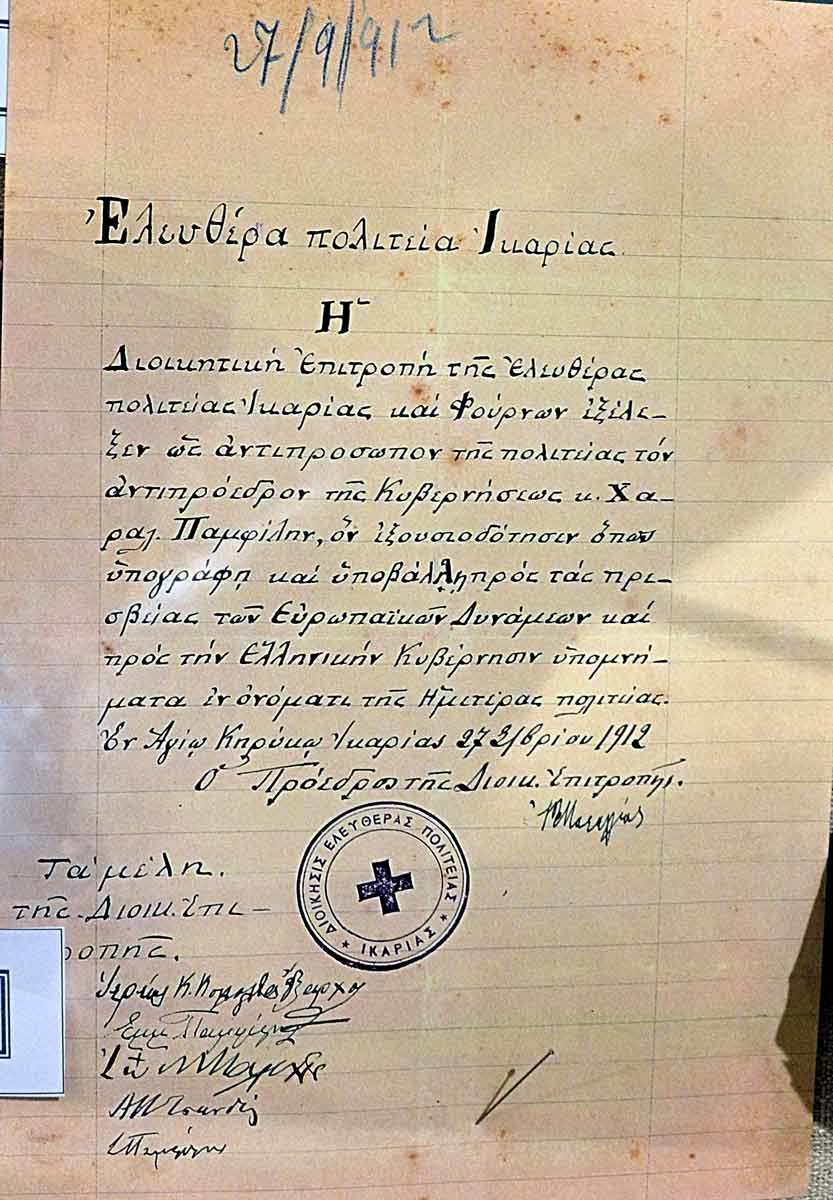 27/9/912
Ἐλευθέρα πολιτεία Ἰκαρίας
Ἡ
Διοικητική Ἐπιτροπή τῆς Ἐλευθέρας
πολιτείας Ἰκαρίας καί Φούρνων ἐξέλε-
ξεν ὡς ἀντιπρόσωπον τῆς πολιτείας τόν
ἀντιπρόεδρον τῆς Κυβερνήσεως κ. Χα-
ραλ. Παμφίλην, ὅν ἐξουσιοδότησεν ὅπως
ὑπογράφῃ καί ὑποβάλλῃ πρός τάς πρε-
σβείας τῶν Εὐρωπαϊκῶν Δυνάμεων καί
πρός τήν Ἑλληνικήν Κυβέρνησιν ὑπομνή-
ματα ἐν ὀνόματι τῆς Ἡμετέρας πολιτείας.
Ἐν Ἁγίῳ Κηρύκῳ Ἰκαρίας 27 7/βρίου 1912
Ὁ Πρόεδρος τῆς Διοικ. Ἐπιτροπῆς.
ΔΙΟΙΚΗΣΙΣ ΕΛΕΥΘΕΡΑΣ ΠΟΛΙΤΕΙΑΣ
ΙΚΑΡΙΑΣ
Τά μέλη.
τῆς Διοικ. Ἐπι-
ροπῆς.